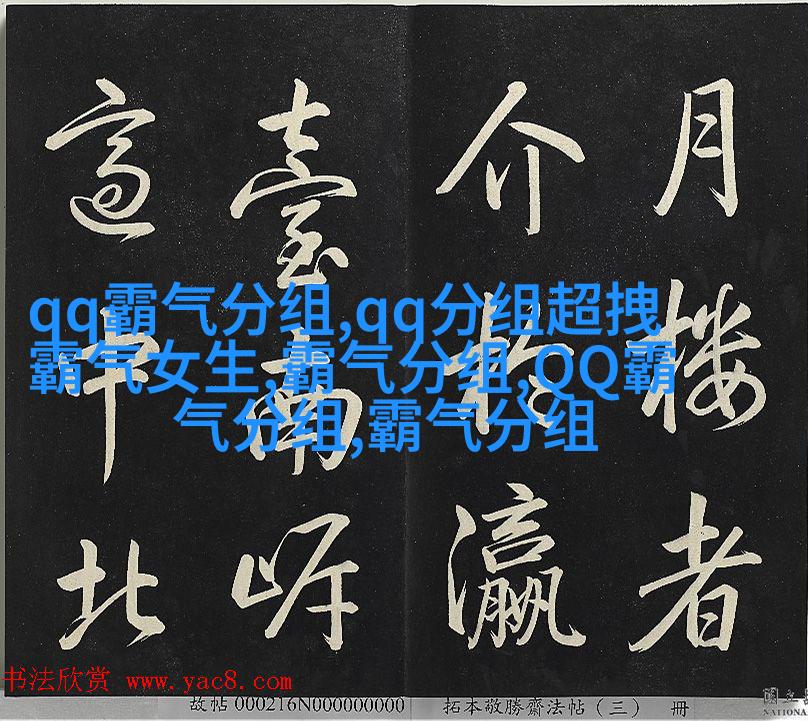 月楼者
介於瀛
臺南岸
適中北
qq霸气分组,qq分组超拽
霸气女生,霸气分组,QQ霸
气分组,霸气分组
书法欣赏 www.yac8.com
故帖 000216N000000000 拓本敬勝齋法帖（三） 册
國立
NATIONA